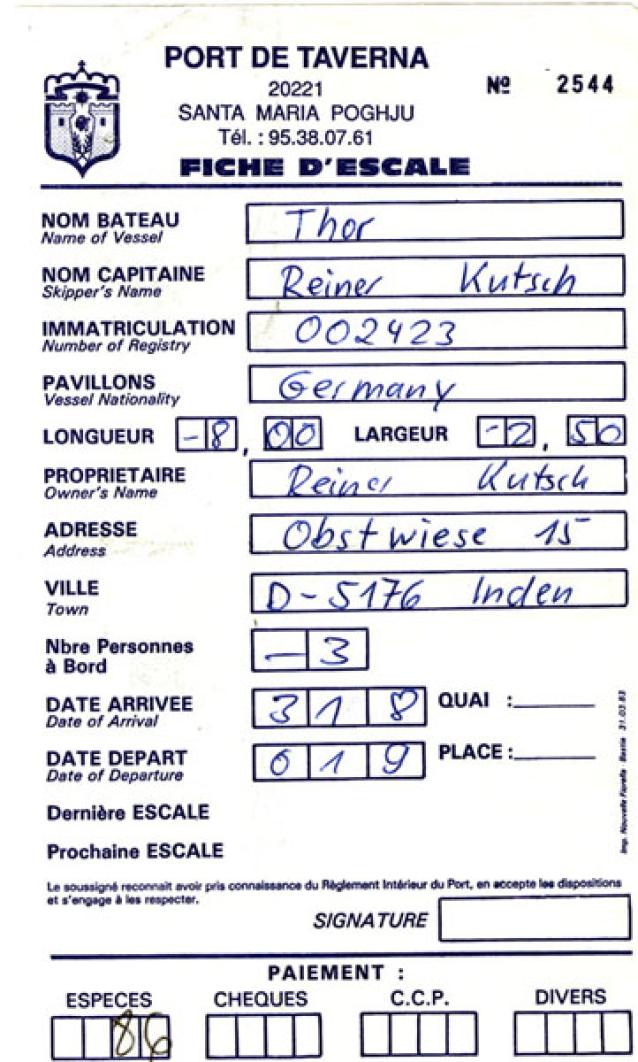 PORT DE TAVERNA
20221
Nº 2544
SANTA MARIA POGHJU
Tél. : 95.38.07.61
FICHE D'ESCALE
NOM BATEAU Thor
Name of Vessel
NOM CAPITAINE Reiner Kutsch
Skipper's Name
IMMATRICULATION 002423
Number of Registry
PAVILLONS Germany
Vessel Nationality
LONGUEUR -8, 00 LARGEUR -2, 50
PROPRIETAIRE Reiner Kutsch
Owner's Name
ADRESSE Obstwiese 15
Address
VILLE D-5176 Inden
Town
Nbre Personnes - 3
à Bord
DATE ARRIVEE 3 1 8 QUAI :
Date of Arrival
DATE DEPART 0 1 9 PLACE :
Date of Departure
Dernière ESCALE
Prochaine ESCALE
Imp. Nouvelle Fiorella - Bastia 31.03.83
Le soussigné reconnait avoir pris connaissance du Règlement Intérieur du Port, en accepte les dispositions
et s'engage à les respecter.
SIGNATURE
PAIEMENT :
ESPECES CHEQUES C.C.P. DIVERS
86